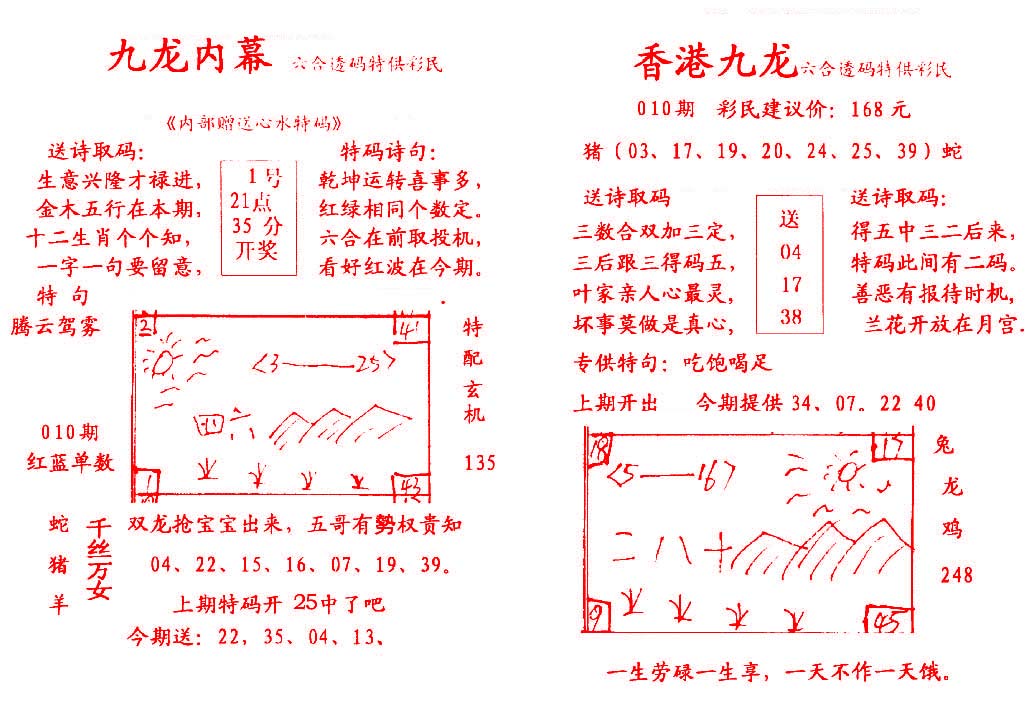 九龙内幕 六合透码特供彩民
《内部赠送心水特码》
送诗取码：
生意兴隆才禄进，
金木五行在本期，
十二生肖个个知，
一字一句要留意，
1号
21点
35 分
开奖
特码诗句：
乾坤运转喜事多，
红绿相同个数定。
六合在前取投机，
看好红波在今期。
特 句
腾云驾雾
010期
红蓝单数
2
41
<3——25>
四六
1
43
特
配
玄
机
135
蛇
猪
羊
千丝万女
双龙抢宝宝出来，五哥有势权贵知
04、22、15、16、07、19、39。
上期特码开 25中了吧
今期送：22，35、04、13、
香港九龙六合透码特供彩民
010期 彩民建议价：168元
猪（03、17、19、20、24、25、39）蛇
送诗取码
三数合双加三定，
三后跟三得码五，
叶家亲人心最灵，
坏事莫做是真心，
送
04
17
38
送诗取码：
得五中三二后来，
特码此间有二码。
善恶有报待时机，
兰花开放在月宫.
专供特句：吃饱喝足
上期开出 今期提供34、07。22 40
18
17
<5——16>
二八十
9
45
兔
龙
鸡
248
一生劳碌一生享，一天不作一天饿。